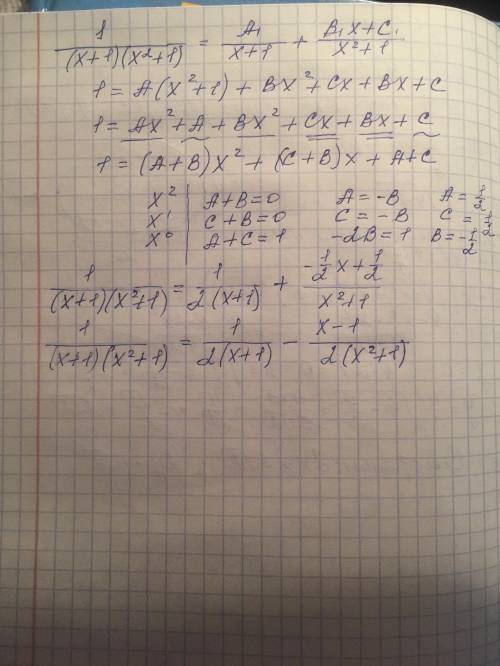 1/((x+1)(x²+1)) = A₁/(x+1) + (B₁x+C₁)/(x²+1)
1 = A(x²+1) + Bx² + Cx + Bx + C
1 = Ax² + A + Bx² + Cx + Bx + C
1 = (A+B)x² + (C+B)x + A+C
x² | A+B=0 A=-B A=1/2
x¹ | C+B=0 C=-B C=1/2
x⁰ | A+C=1 -2B=1 B=-1/2
1/((x+1)(x²+1)) = 1/(2(x+1)) + (-1/2x+1/2)/(x²+1)
1/((x+1)(x²+1)) = 1/(2(x+1)) - (x-1)/(2(x²+1))